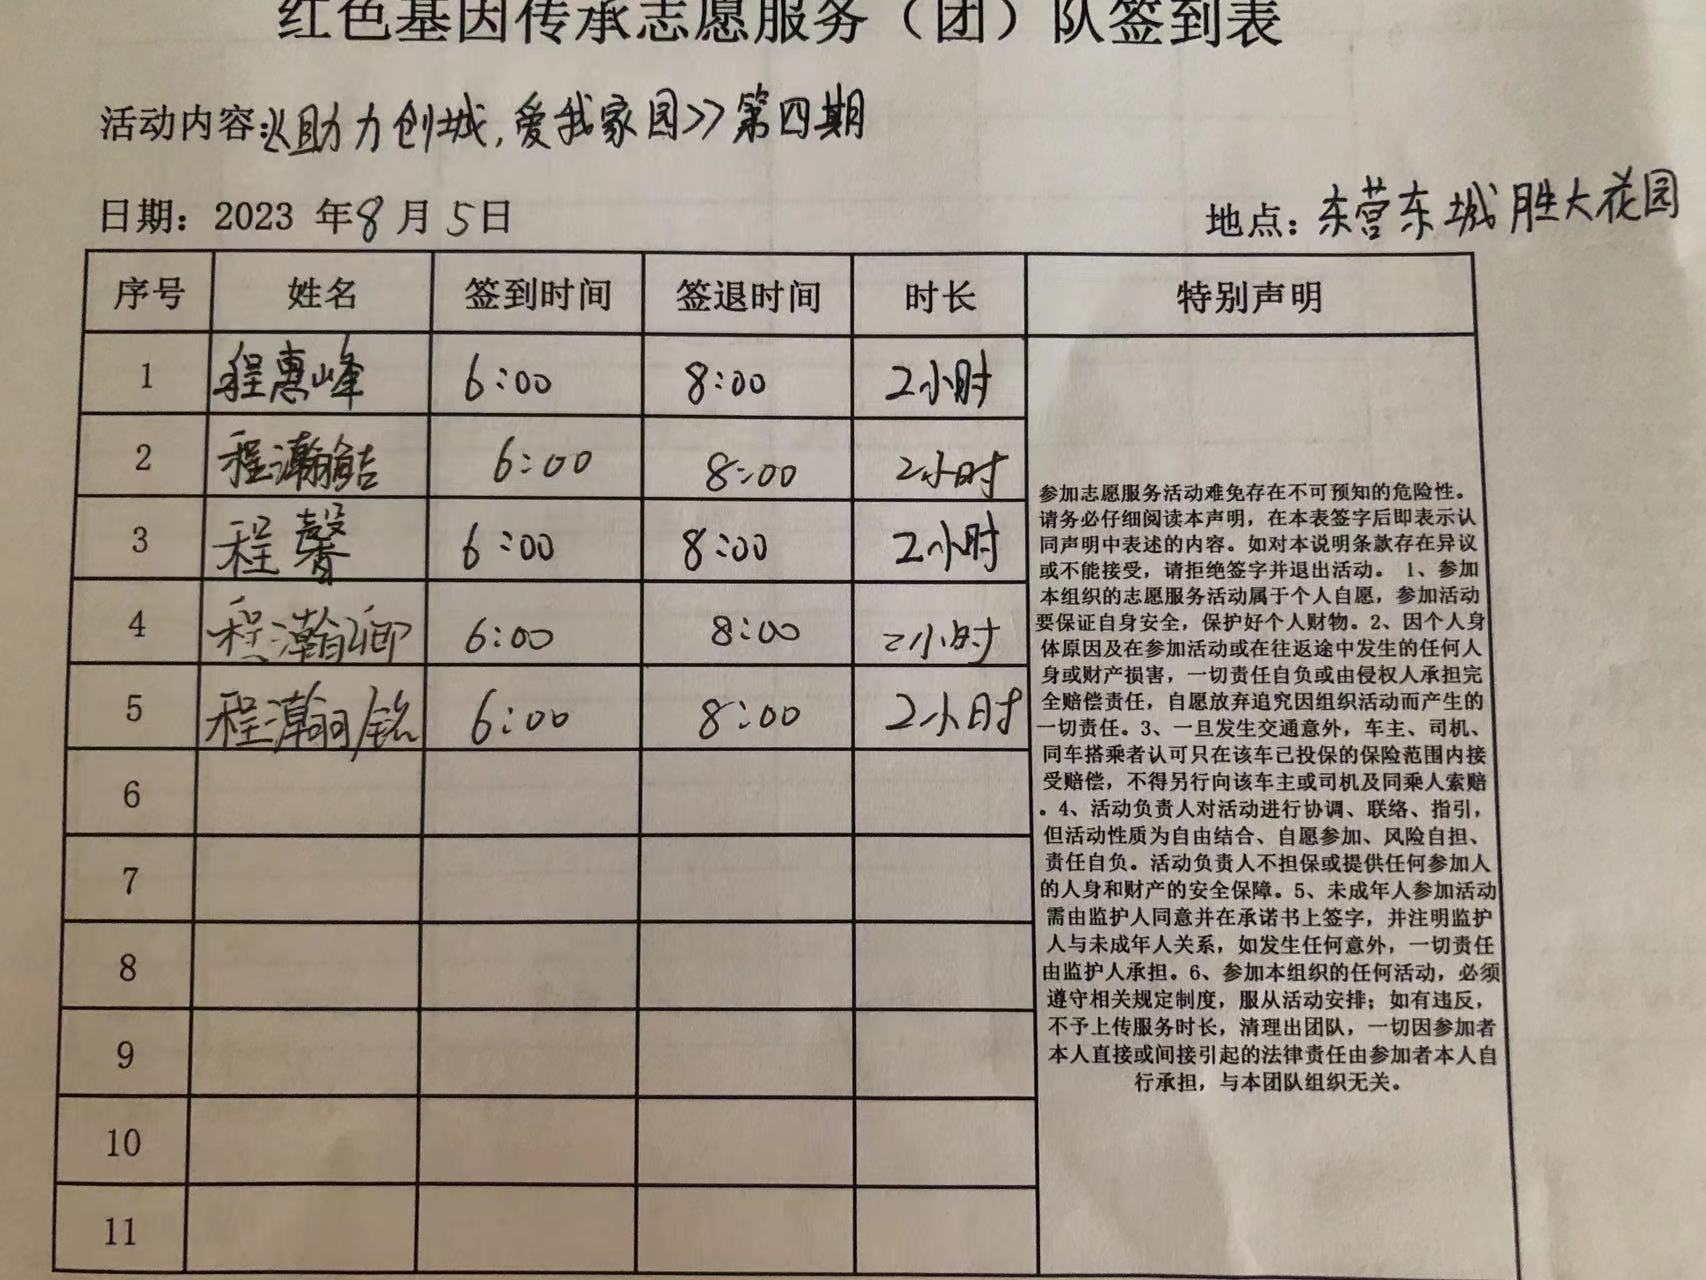 红色基因传承志愿服务（团）队签到表
活动内容:《助力创城,爱我家园》第四期
日期: 2023 年8月5日
地点: 东营东城胜大花园
序号 姓名 签到时间 签退时间 时长 特别声明
1 程惠峰 6:00 8:00 2小时
2 程瀚皓 6:00 8:00 2小时
3 程馨 6:00 8:00 2小时
4 程瀚卿 6:00 8:00 2小时
5 程瀚铭 6:00 8:00 2小时
6
7
8
9
10
11
参加志愿服务活动难免存在不可预知的危险性。
请务必仔细阅读本声明，在本表签字后即表示认
同声明中表述的内容。如对本说明条款存在异议
或不能接受，请拒绝签字并退出活动。 1、参加
本组织的志愿服务活动属于个人自愿，参加活动
要保证自身安全，保护好个人财物。2、因个人身
体原因及在参加活动或在往返途中发生的任何人
身或财产损害，一切责任自负或由侵权人承担完
全赔偿责任，自愿放弃追究因组织活动而产生的
一切责任。3、一旦发生交通意外，车主、司机、
同车搭乘者认可只在该车已投保的保险范围内接
受赔偿，不得另行向该车主或司机及同乘人索赔
。4、活动负责人对活动进行协调、联络、指引，
但活动性质为自由结合、自愿参加、风险自担、
责任自负。活动负责人不担保或提供任何参加人
的人身和财产的安全保障。5、未成年人参加活动
需由监护人同意并在承诺书上签字，并注明监护
人与未成年人关系，如发生任何意外，一切责任
由监护人承担。6、参加本组织的任何活动，必须
遵守相关规定制度，服从活动安排；如有违反，
不予上传服务时长，清理出团队，一切因参加者
本人直接或间接引起的法律责任由参加者本人自
行承担，与本团队组织无关。